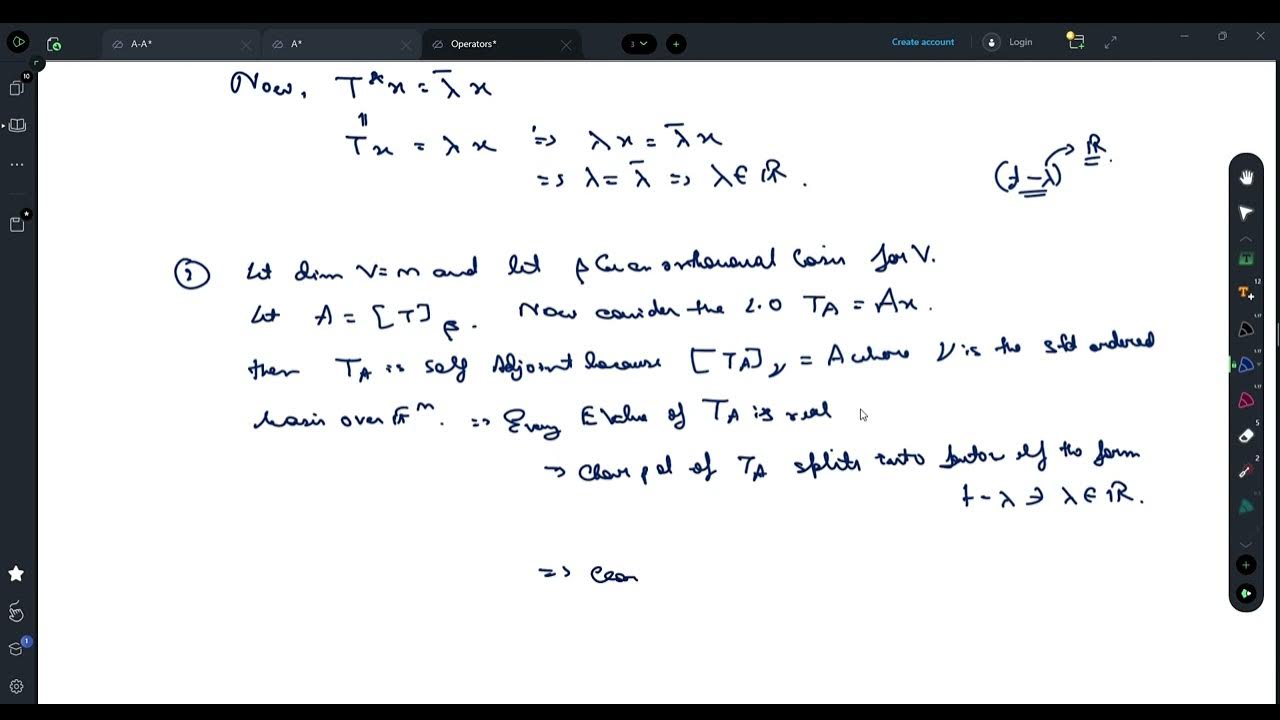 A-A*
A*
Operators*
3
Create account
Login
10
Now, T*x = λ̄ x
॥
Tx = λx => λx = λ̄ x
=> λ = λ̄ => λ ∈ ℝ.
(t-λ) ℝ.
② Let dim V = n and let β be an orthonormal basis for V.
Let A = [T]β. Now consider the L.O TA = Ax.
then TA is self Adjoint because [TA]γ = A where γ is the std ordered
basis over Fⁿ. => Every E Value of TA is real
→ Char pol of TA splits into factor of the form
t-λ ∋ λ ∈ ℝ.
=>
12
5
2
1